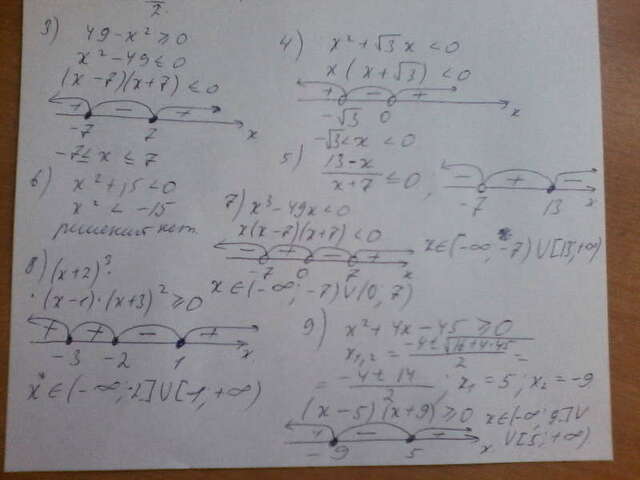 2
3) 49 - x² ≥ 0
x² - 49 ≤ 0
(x - 7)(x + 7) ≤ 0
+ - +
-7 7 x
-7 ≤ x ≤ 7
4) x² + √3 x < 0
x (x + √3) < 0
+ - +
-√3 0 x
-√3 < x < 0
5) (13 - x)/(x + 7) ≤ 0,
- + -
-7 13 x
x ∈ (-∞; -7) ∪ [13; +∞)
6) x² + 15 < 0
x² < -15
решения нет.
7) x³ - 49x < 0
x(x - 7)(x + 7) < 0
- + - +
-7 0 7 x
x ∈ (-∞; -7) ∪ (0, 7)
8) (x + 2)³ ·
· (x - 1) · (x + 3)² ≥ 0
+ + - +
-3 -2 1 x
x ∈ (-∞; -2] ∪ [1, +∞)
9) x² + 4x - 45 ≥ 0
x₁,₂ = (-4 ± √(16 + 4·45))/2 =
= (-4 ± 14)/2; x₁ = 5; x₂ = -9
(x - 5)(x + 9) ≥ 0
+ - +
-9 5 x
x ∈ (-∞; 9] ∪
∪ [5; +∞)